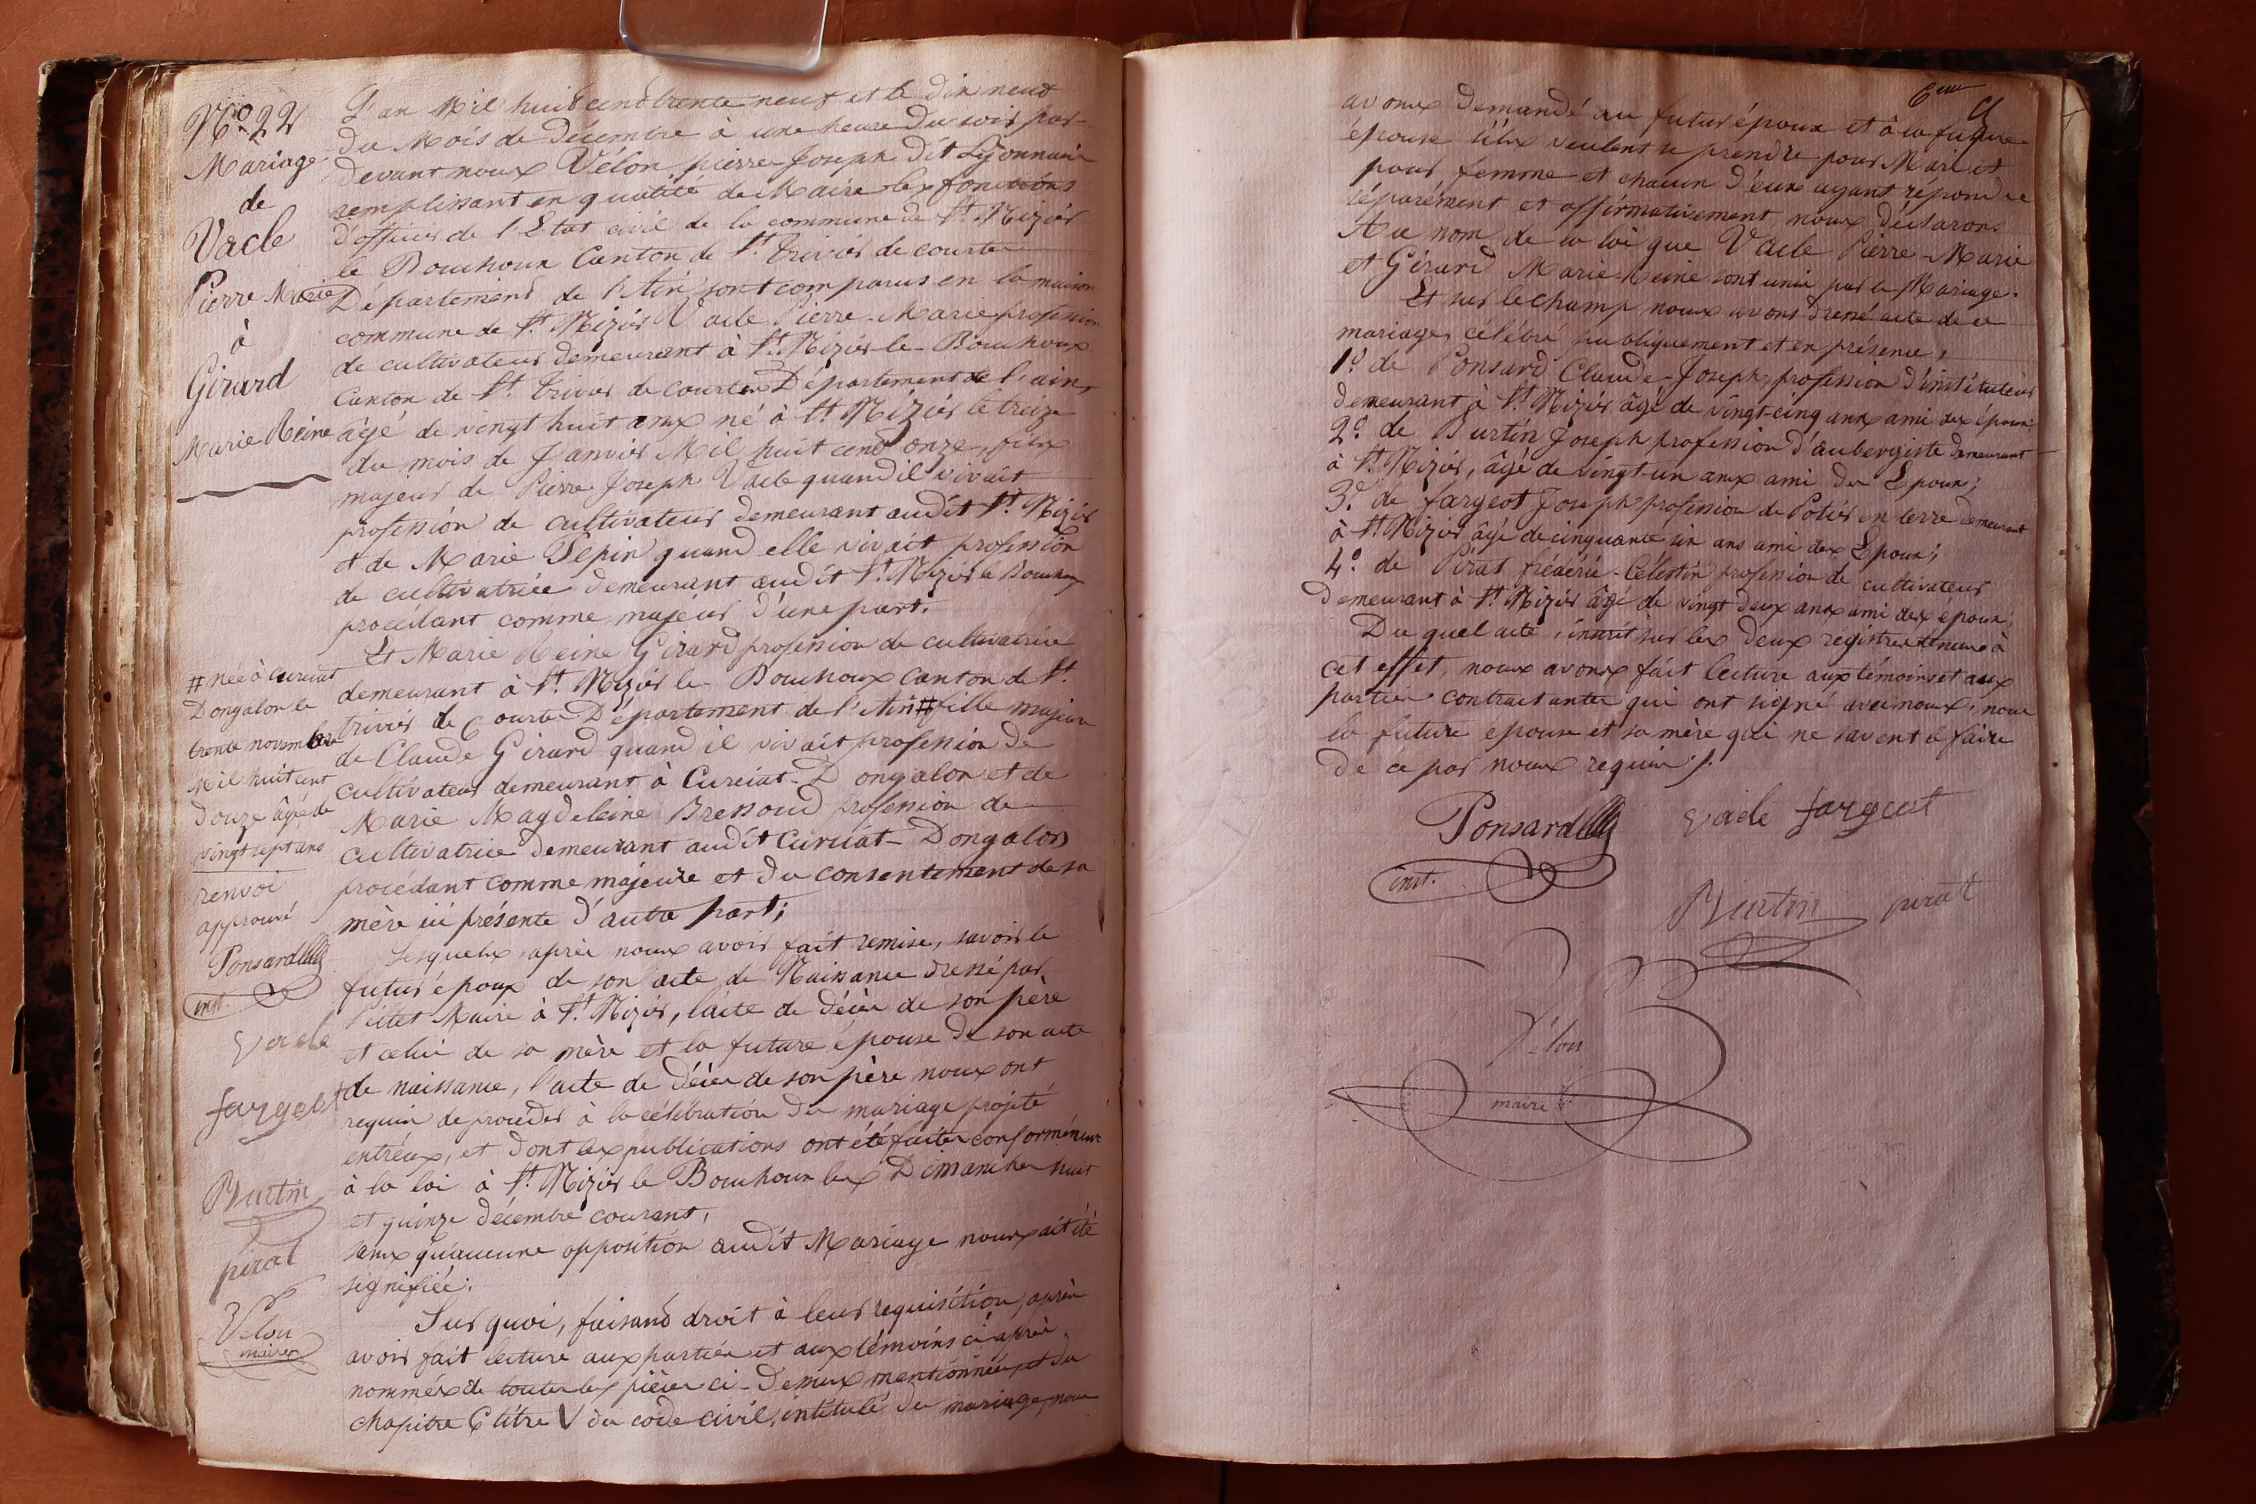 No 22
Mariage
de
Vacle
Pierre Marie
à
Girard
Marie Reine
L'an Mil huit cent trente neuf et le dix neuf
du Mois de Décembre à une heure du soir par-
devant nous Vélon pierre Joseph dit Lyonnais
remplissant en qualité de Maire les fonctions
d'officier de l'Etat civil de la commune de St. Nizier
le Bouchoux Canton de St. trivier de courtes
Département de l'Ain sont comparus en la maison
commune de St. Nizier Vacle Pierre-Marie profession
de cultivateur demeurant à St. Nizier-le-Bouchoux
Canton de St. trivier de courtes Département de l'ain,
âgé de vingt huit ans né à St. Nizier le treize
du mois de Janvier Mil huit cent onze, fils
majeur de Pierre Joseph Vacle quand il vivait
profession de cultivateur demeurant audit St. Nizier
et de Marie Pepin quand elle vivait profession
de cultivatrice demeurant audit St. Nizier le Bouchoux
procédant comme majeur d'une part.
Et Marie Reine Girard profession de cultivatrice
demeurant à St. Nizier le Bouchoux Canton de St.
trivier de Courtes Département de l'Ain # fille majeure
de Claude Girard quand il vivait profession de
cultivateur demeurant à Curciat-Dongalon et de
Marie Magdeleine Bressoud profession de
cultivatrice demeurant audit Curciat-Dongalon
procédant comme majeure et du consentement de sa
mère ici présente d'autre part;
Lesquels, après nous avoir fait remise, savoir le
futur époux de son acte de Naissance dressé par
l'Maire à St. Nizier, l'acte de décès de son père
et celui de sa mère et la future épouse de son acte
de naissance, l'acte de décès de son père nous ont
requis de procéder à la célébration du mariage projeté
entr'eux, et dont les publications ont été faites conformément
à la loi à St. Nizier le Bouchoux les Dimanches huit
et quinze décembre courant,
sans qu'aucune opposition audit Mariage nous ait été
signifiée.
Sur quoi, faisant droit à leur requisition, après
avoir fait lecture aux parties et aux témoins ci-après
nommés de toutes les pièces ci-dessus mentionnées et du
chapitre 6 titre V du code civil, intitulé du mariage, nous
# née à curciat
Dongalon le
trente novembre
Mil huit cent
douze âgée de
vingt sept ans
renvoi
approuvé
Ponsard
inst.
vacle
fargeot
Burtin
pirat
Vélon
maire
6eme
avons demandé au futur époux et à la future
épouse s'ils veulent se prendre pour Mari et
pour femme et chacun d'eux ayant répondu
séparément et affirmativement nous déclarons
Au nom de la loi que Vacle Pierre-Marie
et Girard Marie-Reine sont unis par le Mariage.
Et sur le champ nous avons dressé acte de ce
mariage, célébré publiquement et en présence,
1o. de Ponsard Claude-Joseph, profession d'instituteur
demeurant à St. Nizier âgé de vingt-cinq ans ami des époux;
2o. de Burtin Joseph profession d'aubergiste demeurant
à St. Nizier, âgé de vingt-un ans ami des Epoux;
3o. de fargeot Joseph profession de Potier en terre demeurant
à St. Nizier âgé de cinquante six ans ami des Epoux;
4o. de Pirat fréderic-Célestin profession de cultivateur
demeurant à St. Nizier âgé de vingt deux ans ami des epoux;
Du quel acte, inscrit sur les deux registres tenus à
cet effet, nous avons fait lecture aux témoins et aux
parties contractantes qui ont signé avec nous, non
la future épouse et sa mère qui ne savent le faire
de ce par nous requis./.
Ponsard vacle fargeot
inst.
Burtin pirat
Vélon
maire